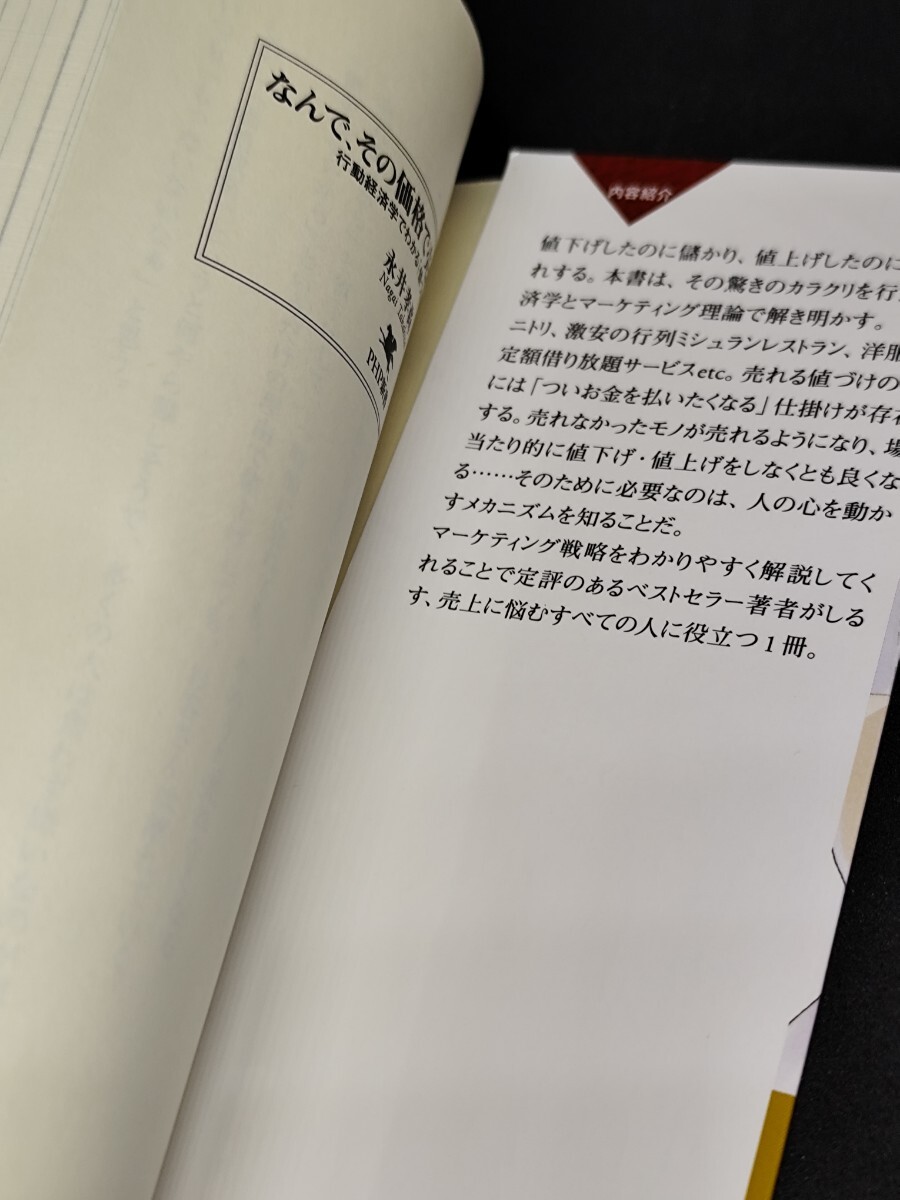 なんで、その価格で
行動経済学でわかる
永井孝
Nagai Taka
PHP新書
内容紹介
値下げしたのに儲かり、値上げしたのに
れする。本書は、その驚きのカラクリを行
済学とマーケティング理論で解き明かす。
ニトリ、激安の行列ミシュランレストラン、洋服
定額借り放題サービスetc。売れる値づけの
には「ついお金を払いたくなる」仕掛けが存在
する。売れなかったモノが売れるようになり、場
当たり的に値下げ・値上げをしなくとも良くな
る……そのために必要なのは、人の心を動か
すメカニズムを知ることだ。
マーケティング戦略をわかりやすく解説してく
れることで定評のあるベストセラー著者がしる
す、売上に悩むすべての人に役立つ1冊。